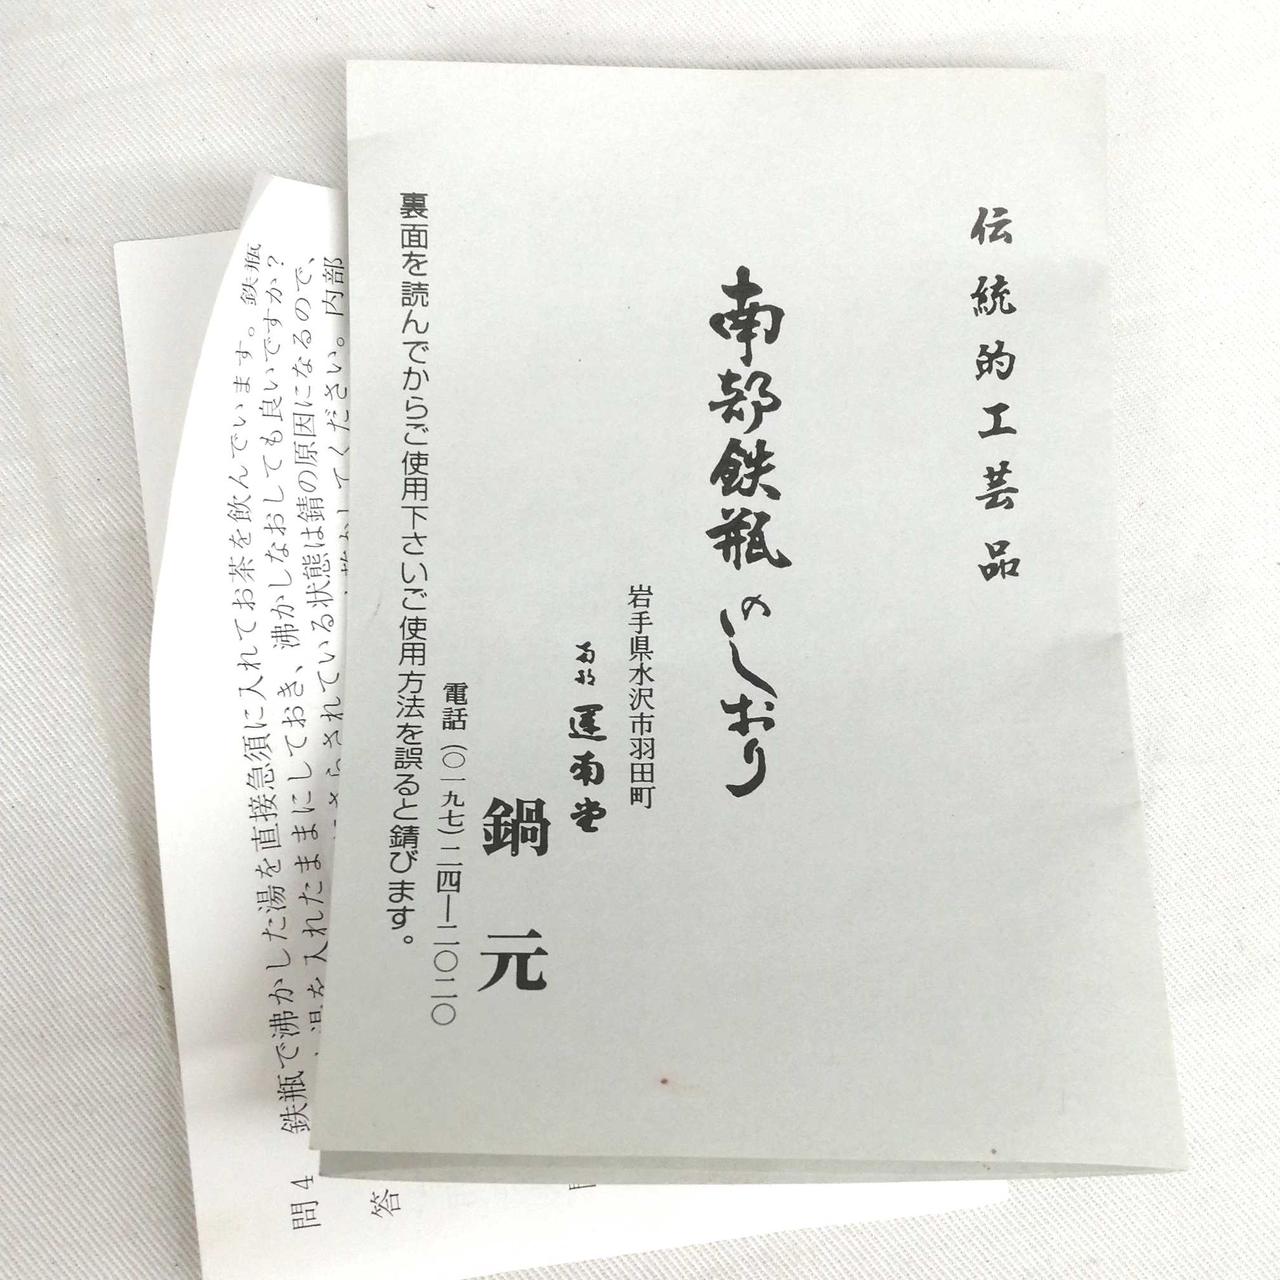 伝統的工芸品
南部鉄瓶のしおり
岩手県水沢市羽田町
南部 運南堂
鍋元
電話（〇一九七）二四―二〇二〇
裏面を読んでからご使用下さいご使用方法を誤ると錆びます。
問4 鉄瓶で沸かした湯を直接急須に入れてお茶を飲んでいます。鉄瓶
湯を入れたままにしておき、沸かしなおしても良いですか？
答
さらされている状態は錆の原因になるので、
てください。内部